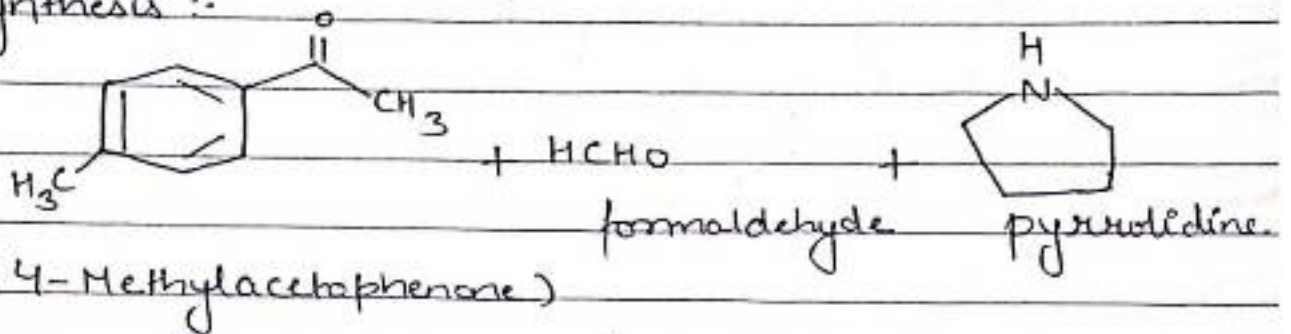 ynthesis :-
O
CH3
H
N
+ HCHO +
H3C
formaldehyde pyrrolidine.
4-Methylacetophenone)